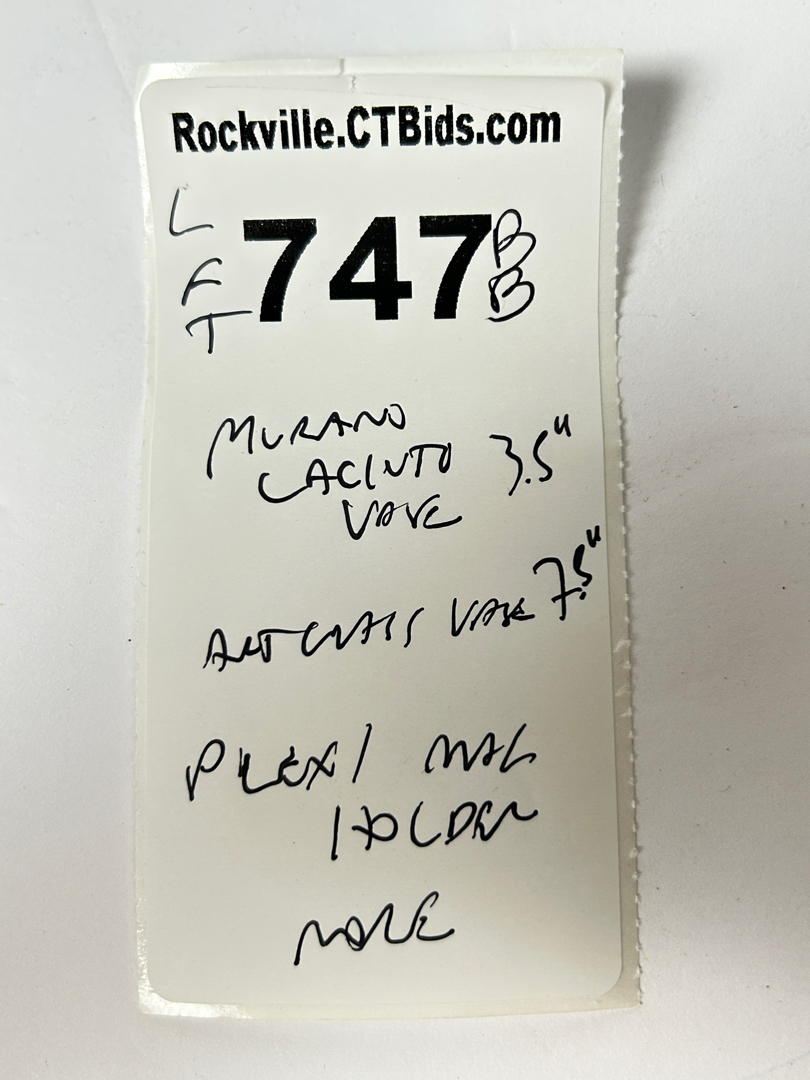 Rockville.CTBids.com
L
F
T
747
B
B
MURANO
CACINTO 3.5"
VASE
ART GLASS VASE 7.5"
PLEXI MAG
HOLDER
MORE